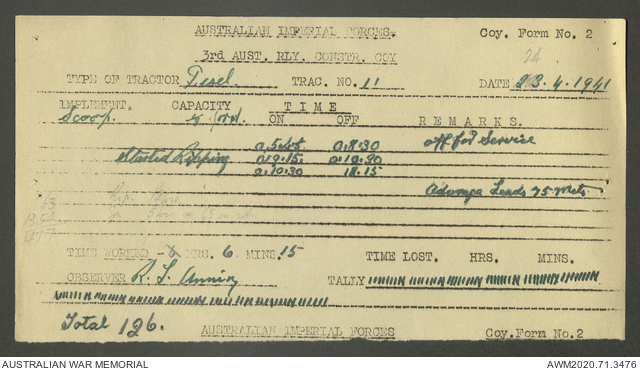 AUSTRALIAN IMPERIAL FORCES. Coy. Form No. 2
3rd AUST. RLY. CONSTR. COY 24
TYPE OF TRACTOR Diesel. TRAC. NO. 11 DATE 23.4.1941
IMPLEMENT. CAPACITY T I M E
Scoop. ON OFF R E M A R K S.
0.5.45 0.8.30 off for Service
Started Ripping 0.9.15. 0.10.20
0.10.30 12.15
Average Leads 75 mets.
TIME WORKED - HRS. 6 MINS. 15 TIME LOST. HRS. MINS.
OBSERVER TALLY
Total 126.
AUSTRALIAN IMPERIAL FORCES Coy. Form No. 2
AUSTRALIAN WAR MEMORIAL AWM2020.71.3476